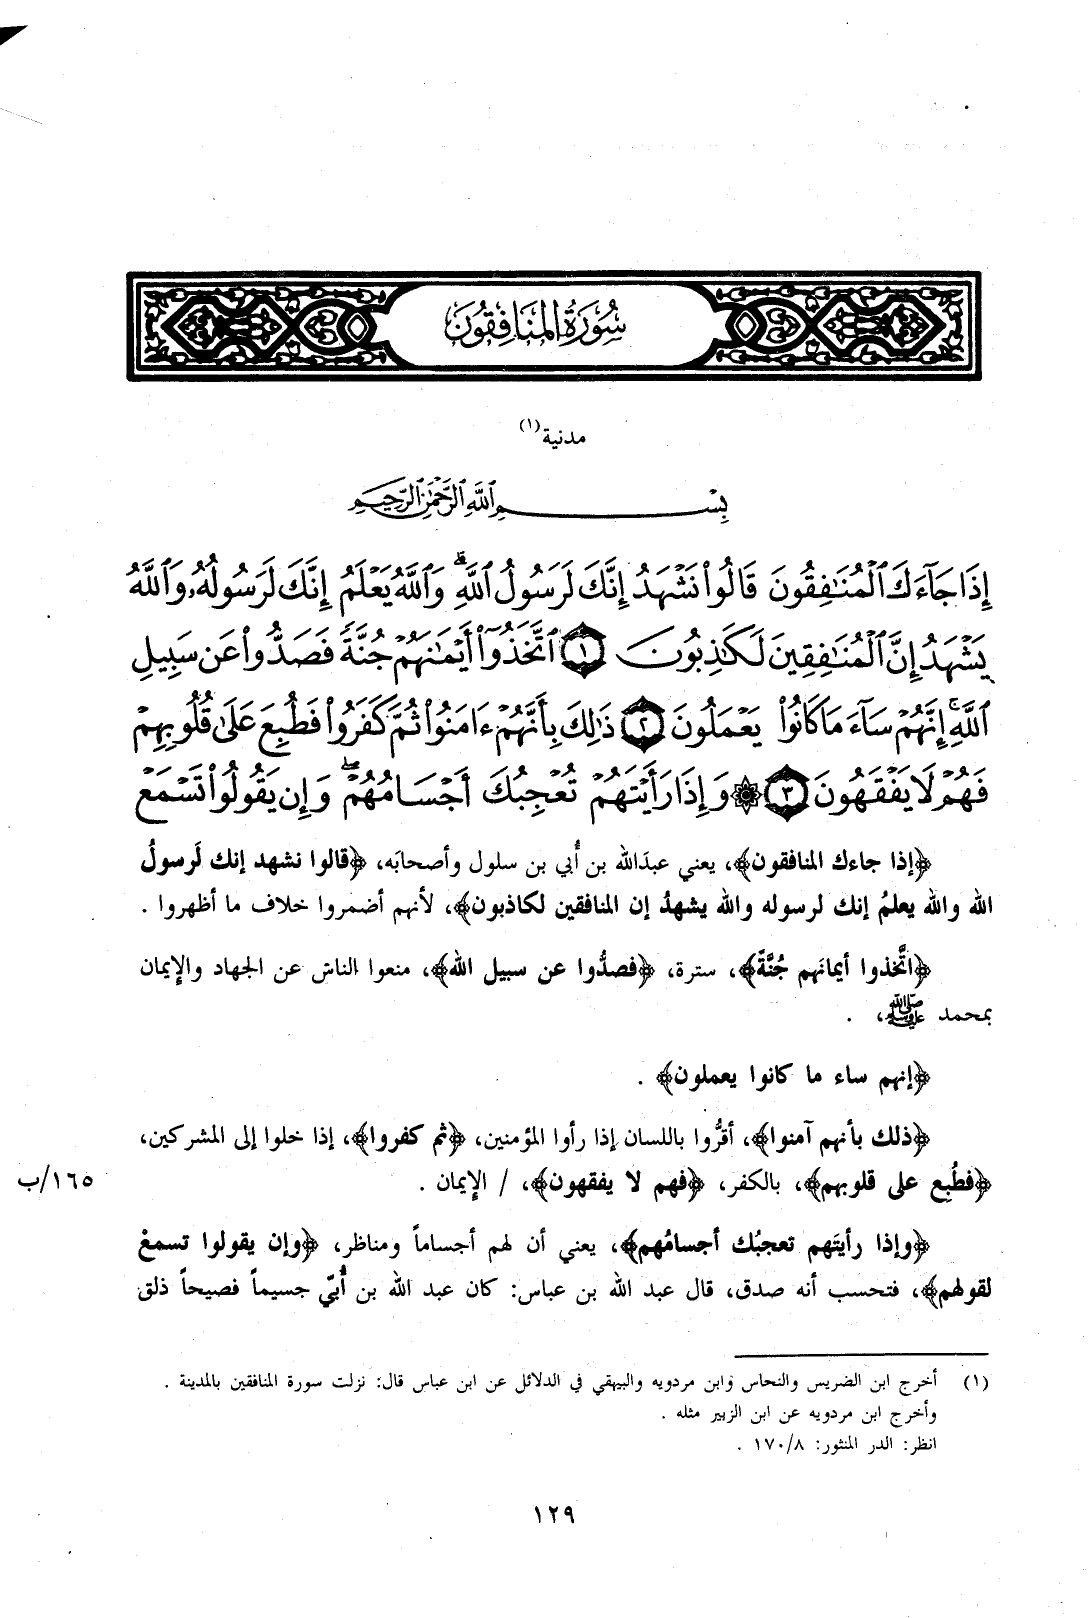 سُورَةُ المُنَافِقُونَ
مدنية(١)
بِسْمِ ٱللَّهِ ٱلرَّحْمَٰنِ ٱلرَّحِيمِ
إِذَا جَآءَكَ ٱلْمُنَٰفِقُونَ قَالُوا۟ نَشْهَدُ إِنَّكَ لَرَسُولُ ٱللَّهِ ۗ وَٱللَّهُ يَعْلَمُ إِنَّكَ لَرَسُولُهُۥ وَٱللَّهُ
يَشْهَدُ إِنَّ ٱلْمُنَٰفِقِينَ لَكَٰذِبُونَ ١ ٱتَّخَذُوٓا۟ أَيْمَٰنَهُمْ جُنَّةً فَصَدُّوا۟ عَن سَبِيلِ
ٱللَّهِ ۚ إِنَّهُمْ سَآءَ مَا كَانُوا۟ يَعْمَلُونَ ٢ ذَٰلِكَ بِأَنَّهُمْ ءَامَنُوا۟ ثُمَّ كَفَرُوا۟ فَطُبِعَ عَلَىٰ قُلُوبِهِمْ
فَهُمْ لَا يَفْقَهُونَ ٣ ۞ وَإِذَا رَأَيْتَهُمْ تُعْجِبُكَ أَجْسَامُهُمْ ۖ وَإِن يَقُولُوا۟ تَسْمَعْ
﴿إذا جاءك المنافقون﴾، يعني عبدَالله بن أُبي بن سلول وأصحابَه، ﴿قالوا نشهد إنك لَرسولُ
الله والله يعلمُ إنك لرسوله والله يشهدُ إن المنافقين لكاذبون﴾، لأنهم أضمروا خلاف ما أظهروا .
﴿اتَّخذوا أيمانَهم جُنَّةً﴾، سترة، ﴿فصدُّوا عن سبيل الله﴾، منعوا الناس عن الجهاد والإيمان
بمحمد ﷺ، .
﴿إنهم ساء ما كانوا يعملون﴾ .
﴿ذلك بأنهم آمنوا﴾، أقرُّوا باللسان إذا رأوا المؤمنين، ﴿ثم كفروا﴾، إذا خلوا إلى المشركين،
﴿فطُبع على قلوبهم﴾، بالكفر، ﴿فهم لا يفقهون﴾، / الإيمان .
١٦٥/ب
﴿وإذا رأيتَهم تعجبُك أجسامُهم﴾، يعني أن لهم أجساماً ومناظر، ﴿وإن يقولوا تسمعْ
لقولهم﴾، فتحسب أنه صدق، قال عبد الله بن عباس: كان عبد الله بن أُبيّ جسيماً فصيحاً ذلق
(١) أخرج ابن الضريس والنحاس وابن مردويه والبيهقي في الدلائل عن ابن عباس قال: نزلت سورة المنافقين بالمدينة .
وأخرج ابن مردويه عن ابن الزبير مثله .
انظر: الدر المنثور: ١٧٠/٨ .
١٢٩